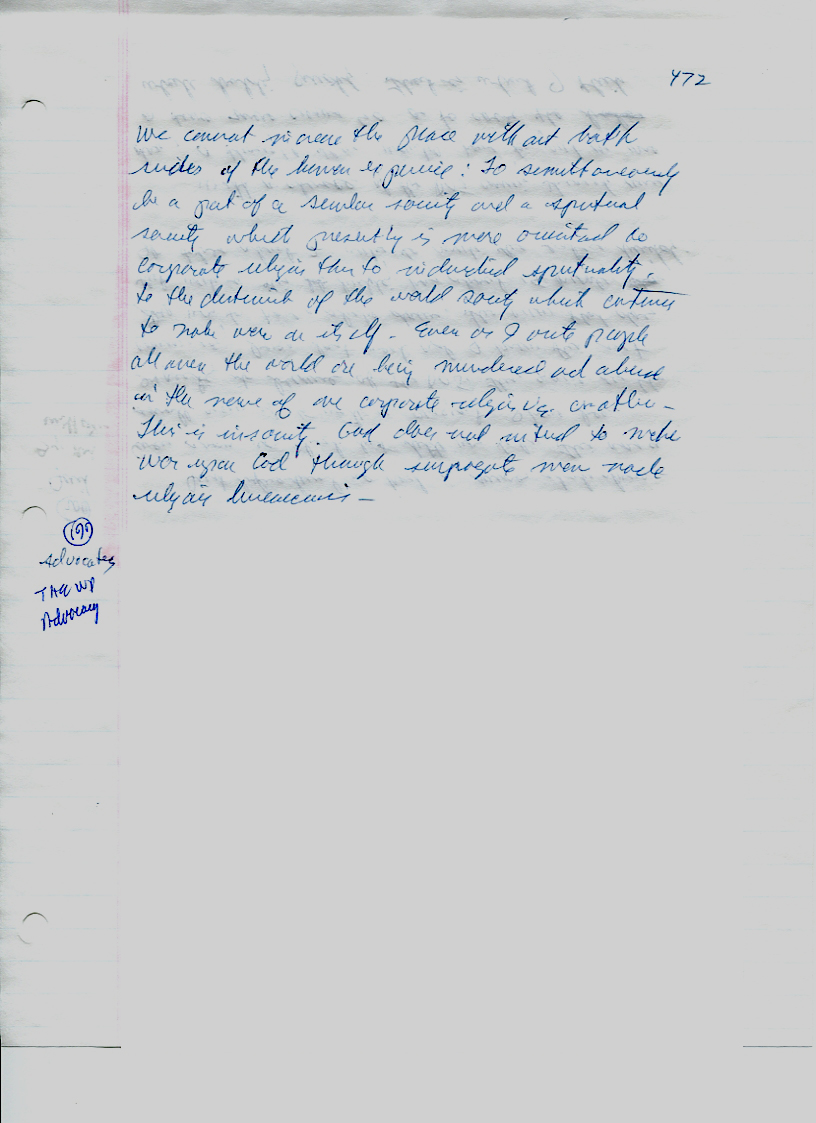 472
We cannot increase the peace without both
sides of the human experience: To simultaneously
be a part of a secular society and a spiritual
society which presently is more oriented to
corporate religion than to individual spirituality.
to the detriment of the world society which continues
to make war on itself. Even as I write people
all over the world are being murdered and abused
in the name of one corporate religion vs. another—
This is insanity. God does not intend to make
war upon God through surrogate men made
religious bureaucracies —
199
Advocates
Advocacy